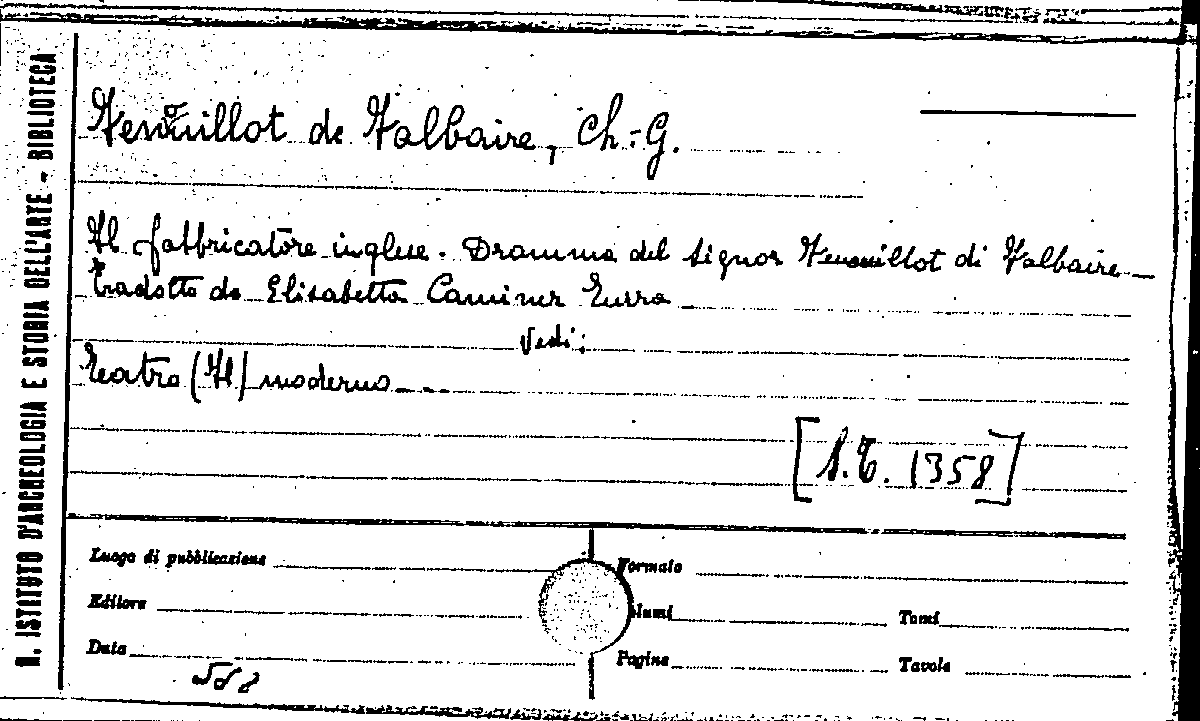 R. ISTITUTO D'ARCHEOLOGIA E STORIA DELL'ARTE - BIBLIOTECA
de Falbaire, Ch.-G.
Il fabbricatore inglese. Dramma del Signor di Falbaire
Tradotto da Elisabetta Caminer Turra
Vedi:
Teatro (Il) moderno...
[S.T. 1358]
Luogo di pubblicazione
Formato
Editore
Volumi
Tomi
Data
Pagine
Tavole